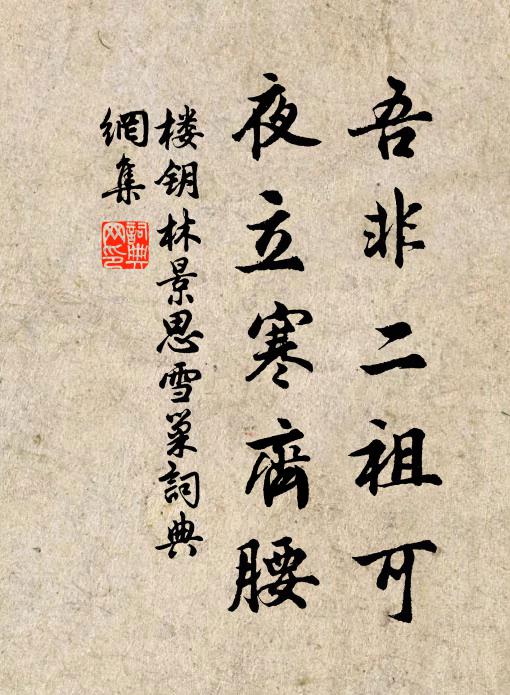 吾非二祖可
夜立寒齊腰
楼钥林景思雪巢詞典
網集
詞典
网印